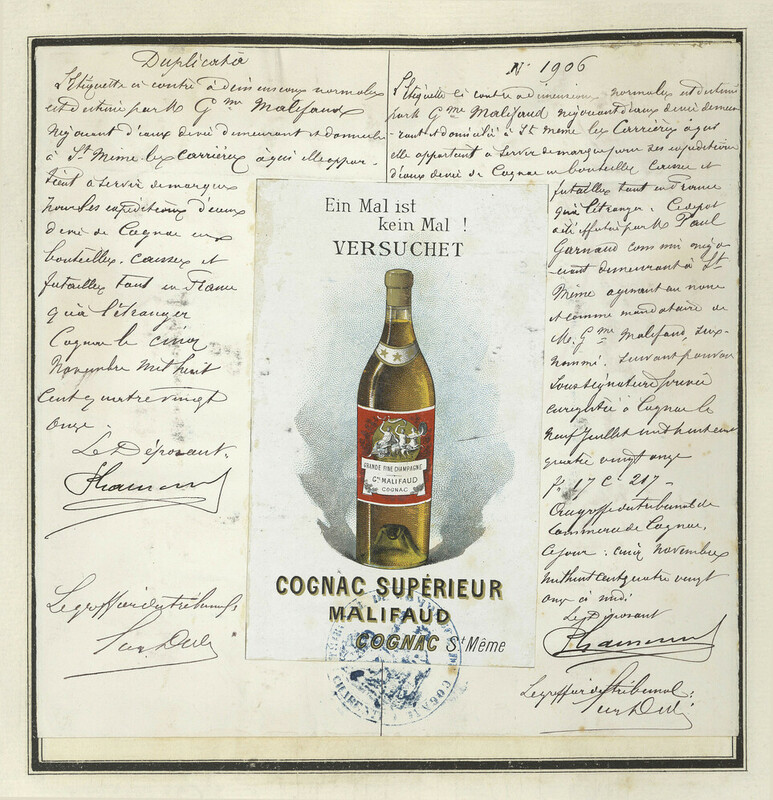 Duplicata
L'Etiquette ci contre à dimensions normales
est destiné par M Gme Malifaud
Négociant d'eaux de vie demeurant et domicilié
à St Même les Carrières à qui elle appar-
tient à servir de marque
pour ses expéditions d'eaux
de vie de Cognac en
bouteilles, caisses et
futailles tant en France
qu'à l'étranger
Cognac le cinq
Novembre mil huit
cent quatre vingt
onze.
Le Déposant.
Le greffier du tribunal,
No 1906
L'Etiquette ci contre à dimension normales est destiné
par M Gme Malifaud négociant d'eaux de vie demeu-
rant et domicilié à St Même les Carrières à qui
elle appartient à servir de marque pour ses expéditions
d'eaux de vie de Cognac en bouteilles caisses et
futailles tant en France
qu'à l'étranger. Ce dépôt
a été effectué par M Paul
Garnaud commis négo-
ciant demeurant à St
Même agissant au nom
et comme mandataire de
M. Gme Malifaud, sus-
nommé. suivant pouvoir
sous signature privée
enregistrée à Cognac le
neuf Juillet mil huit cent
quatre vingt onze
Fo 17 Co 217 -
Au greffe du tribunal de
Commerce de Cognac,
ce jour: cinq Novembre
mil huit cent quatre vingt
onze à midi.
Le Déposant
Le greffier du tribunal:
Ein Mal ist
kein Mal !
VERSUCHET
GRANDE FINE CHAMPAGNE
Gme MALIFAUD
COGNAC
COGNAC SUPÉRIEUR
MALIFAUD
COGNAC St Même